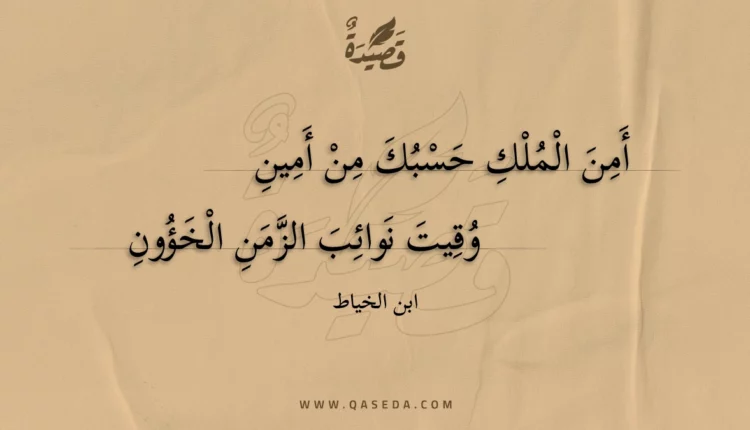 قَصِيْدَةٌ
أَمِنَ الْمُلْكِ حَسْبُكَ مِنْ أَمِينِ
وُقِيتَ نَوائِبَ الزَّمَنِ الْخَؤُونِ
ابن الخياط
WWW.QASEDA.COM